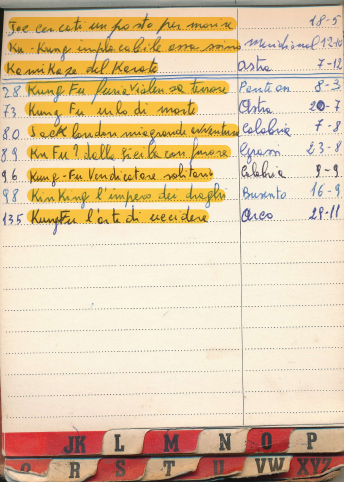 Joe cercati un posto per morire 18-5
Ku-Kung implacabile assassino meridional 12-10
Kamikaze del Karate Astra 7-12
28 Kung Fu furia violenza terrore Pantean 8-3
73 Kung Fu urlo di morte Astra 20-7
80 Jack London mia grande avventura Calabria 7-8
89 Ku Fu? dalla Sicilia con furore Grassi 23-8
96 Kung-Fu Vendicatore solitario Calabria 8-9
98 Kin Kung l'impero dei draghi Busento 16-9
135 Kung Fu l'arte di uccidere Arco 29-11
JK L M N O P
Q R S T U VW XYZ